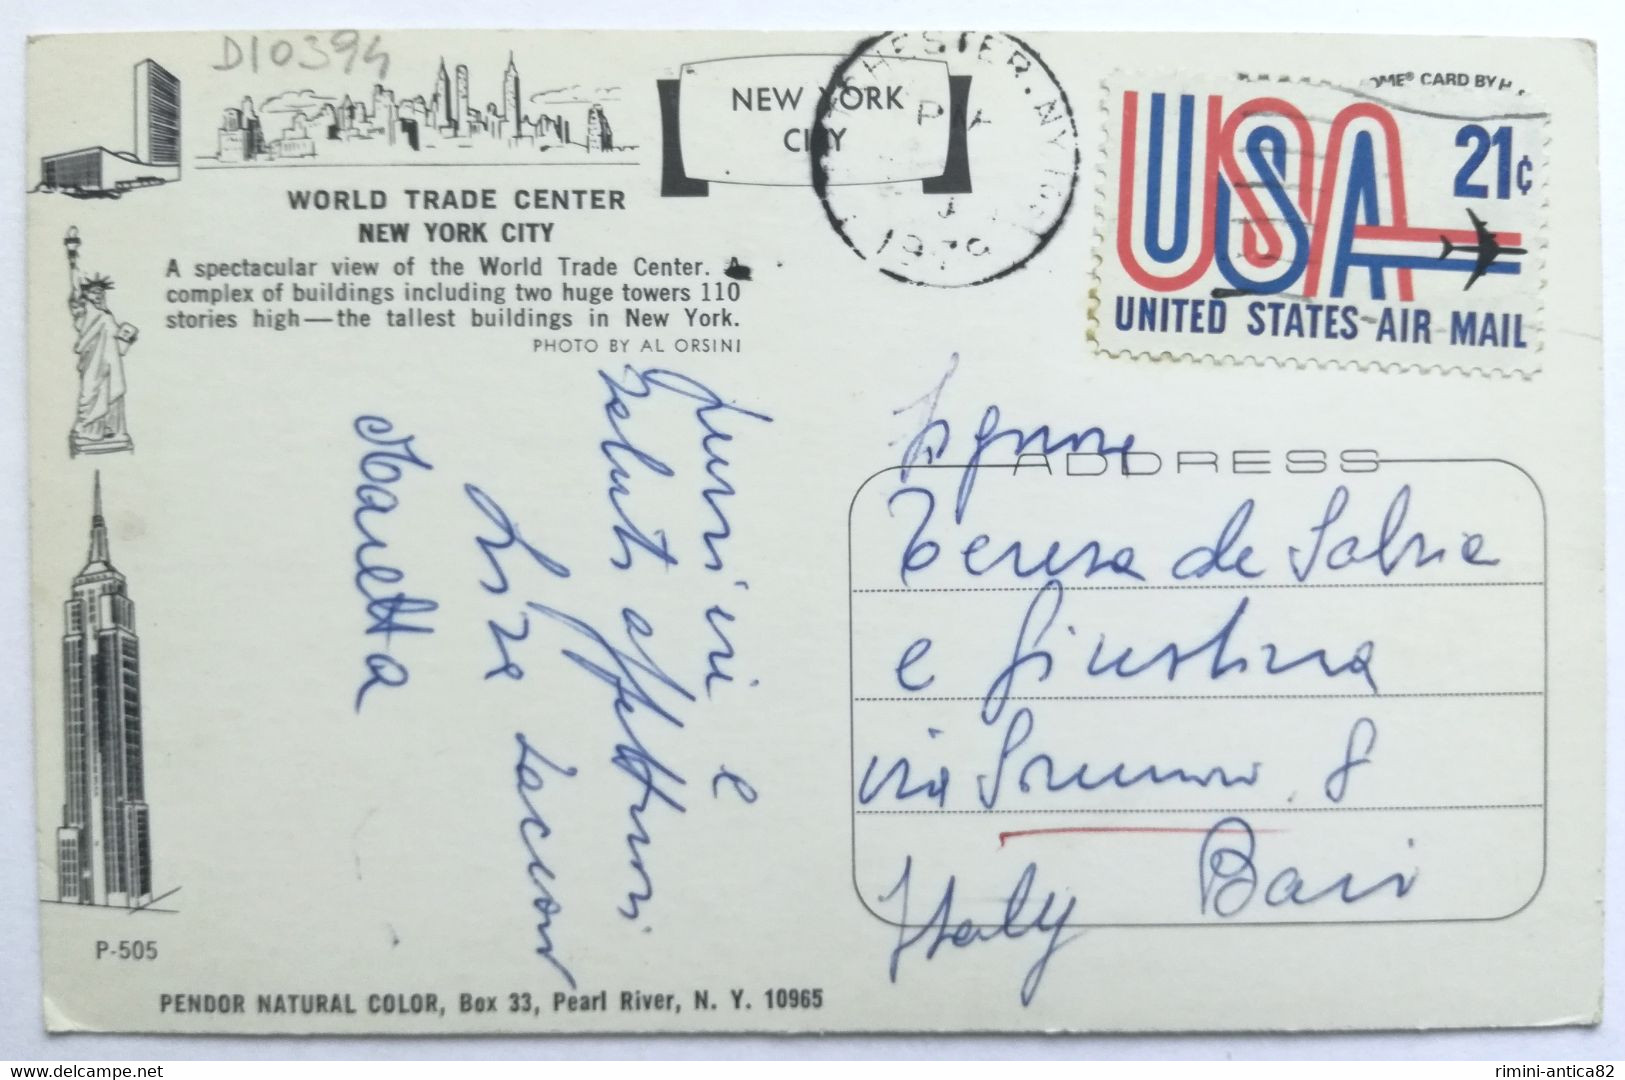 D10394
NEW YORK
CITY
CHESTER. NY
PM
1979
OME® CARD BY
USA
21¢
UNITED STATES AIR MAIL
WORLD TRADE CENTER
NEW YORK CITY
A spectacular view of the World Trade Center. A
complex of buildings including two huge towers 110
stories high—the tallest buildings in New York.
PHOTO BY AL ORSINI
Auguri vivi e
Saluti affettuosi
Marietta
ADDRESS
Teresa de Salvia
e Giustina
via 8
Italy Bari
P-505
PENDOR NATURAL COLOR, Box 33, Pearl River, N. Y. 10965
delcampe.net
rimini-antica82